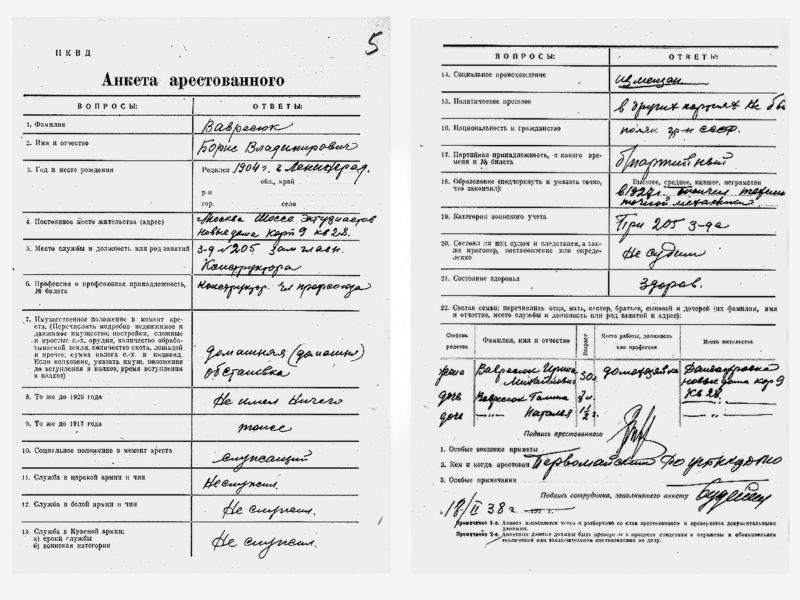 5
НКВД
Анкета арестованного
ВОПРОСЫ: ОТВЕТЫ:
1. Фамилия Вавресюк
2. Имя и отчество Борис Владимирович
3. Год и место рождения Родился 1904 г. г Ленинград.
обл., край
р-н
гор. село
4. Постоянное место жительства (адрес) г Москва Шоссе Энтузиастов
Новые дома Корп 9 кв 28.
5. Место службы и должность или род занятий 3-д № 205 Зам главн.
Конструктора
6. Профессия и профсоюзная принадлежность, № билета Конструктор. Чл профсоюза
7. Имущественное положение в момент аре-
ста. (Перечислить подробно недвижимое и
движимое имущество; постройки, сложные
и простые с.-х. орудия, количество обраба-
тываемой земли, количество скота, лошадей
и прочее; сумма налога с.-х. и индивид.
Если колхозник, указать имущ. положение
до вступления в колхоз, время вступления
в колхоз)
домашняя (домашн)
обстановка
8. То же до 1929 года Не имел Ничего
9. То же до 1917 года тоже
10. Социальное положение в момент ареста служащий
11. Служба в царской армии и чин Не служил.
12. Служба в белой армии и чин Не служил.
13. Служба в Красной армии:
а) сроки службы
б) воинская категория
Не служил.
ВОПРОСЫ: ОТВЕТЫ:
14. Социальное происхождение из мещан.
15. Политическое прошлое в других партиях не бы
16. Национальность и гражданство поляк гр-н СССР.
17. Партийная принадлежность, с какого вре-
мени и № билета
б/партийный
18. Образование (подчеркнуть и указать точно,
что закончил):
Высшее, среднее, низшее, неграмотен
в 1927 г. окончил техник
точной механики
19. Категория воинского учета При 205 з-да
20. Состоял ли под судом и следствием, а так-
же приговор, постановление или опреде-
ление
Не судим
21. Состояние здоровья Здоров.
22. Состав семьи: перечислить отца, мать, сестер, братьев, сыновей и дочерей (их фамилия, имя
и отчество, место службы и должность или род занятий и адрес):
Степень родства Фамилия, имя и отчество Возраст Место работы, должность или профессия Место жительства
жена Вавресюк Ирина
Михайловна 30 л домохозяйка
новые дома кор 9
кв 28
дочь Вавресюк Галина
дочь —„— Наталья 1½ г. —„— —„—
Подпись арестованного
1. Особые внешние приметы
2. Кем и когда арестован Первомайским РО УГБ НКВД МО
3. Особые примечания
Подпись сотрудника, заполнившего анкету
18/II 38 г
Примечание 1-е. Анкета заполняется четко и разборчиво со слов арестованного и проверяется документальными
данными.
Примечание 2-е. Анкетные данные должны быть проверены в процессе следствия и отражены в обвинительном
заключении или заключительном постановлении по делу.